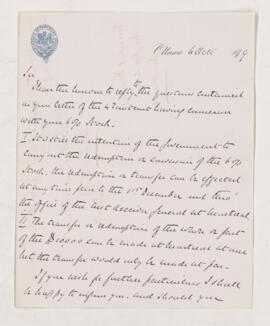 Ottawa 6 Oct 1879
Sir
I have the honour to reply to the questions contained
in your letter of the 4 instant having connexion
with your 6 % Stock.
I. It is the intention of the Government to
carry out the redemption or conversion of the 6 %
Stock, the redemption or transfer can be effected
at any time prior to the 1st December next thro'
the office of the Asst Receiver General at Montreal
II The transfer or redemption of the whole or part
of the $100000 can be made at Montreal at once
but the transfer would only be made at par.
If you wish for further particulars I shall
be happy to inform you, and should you